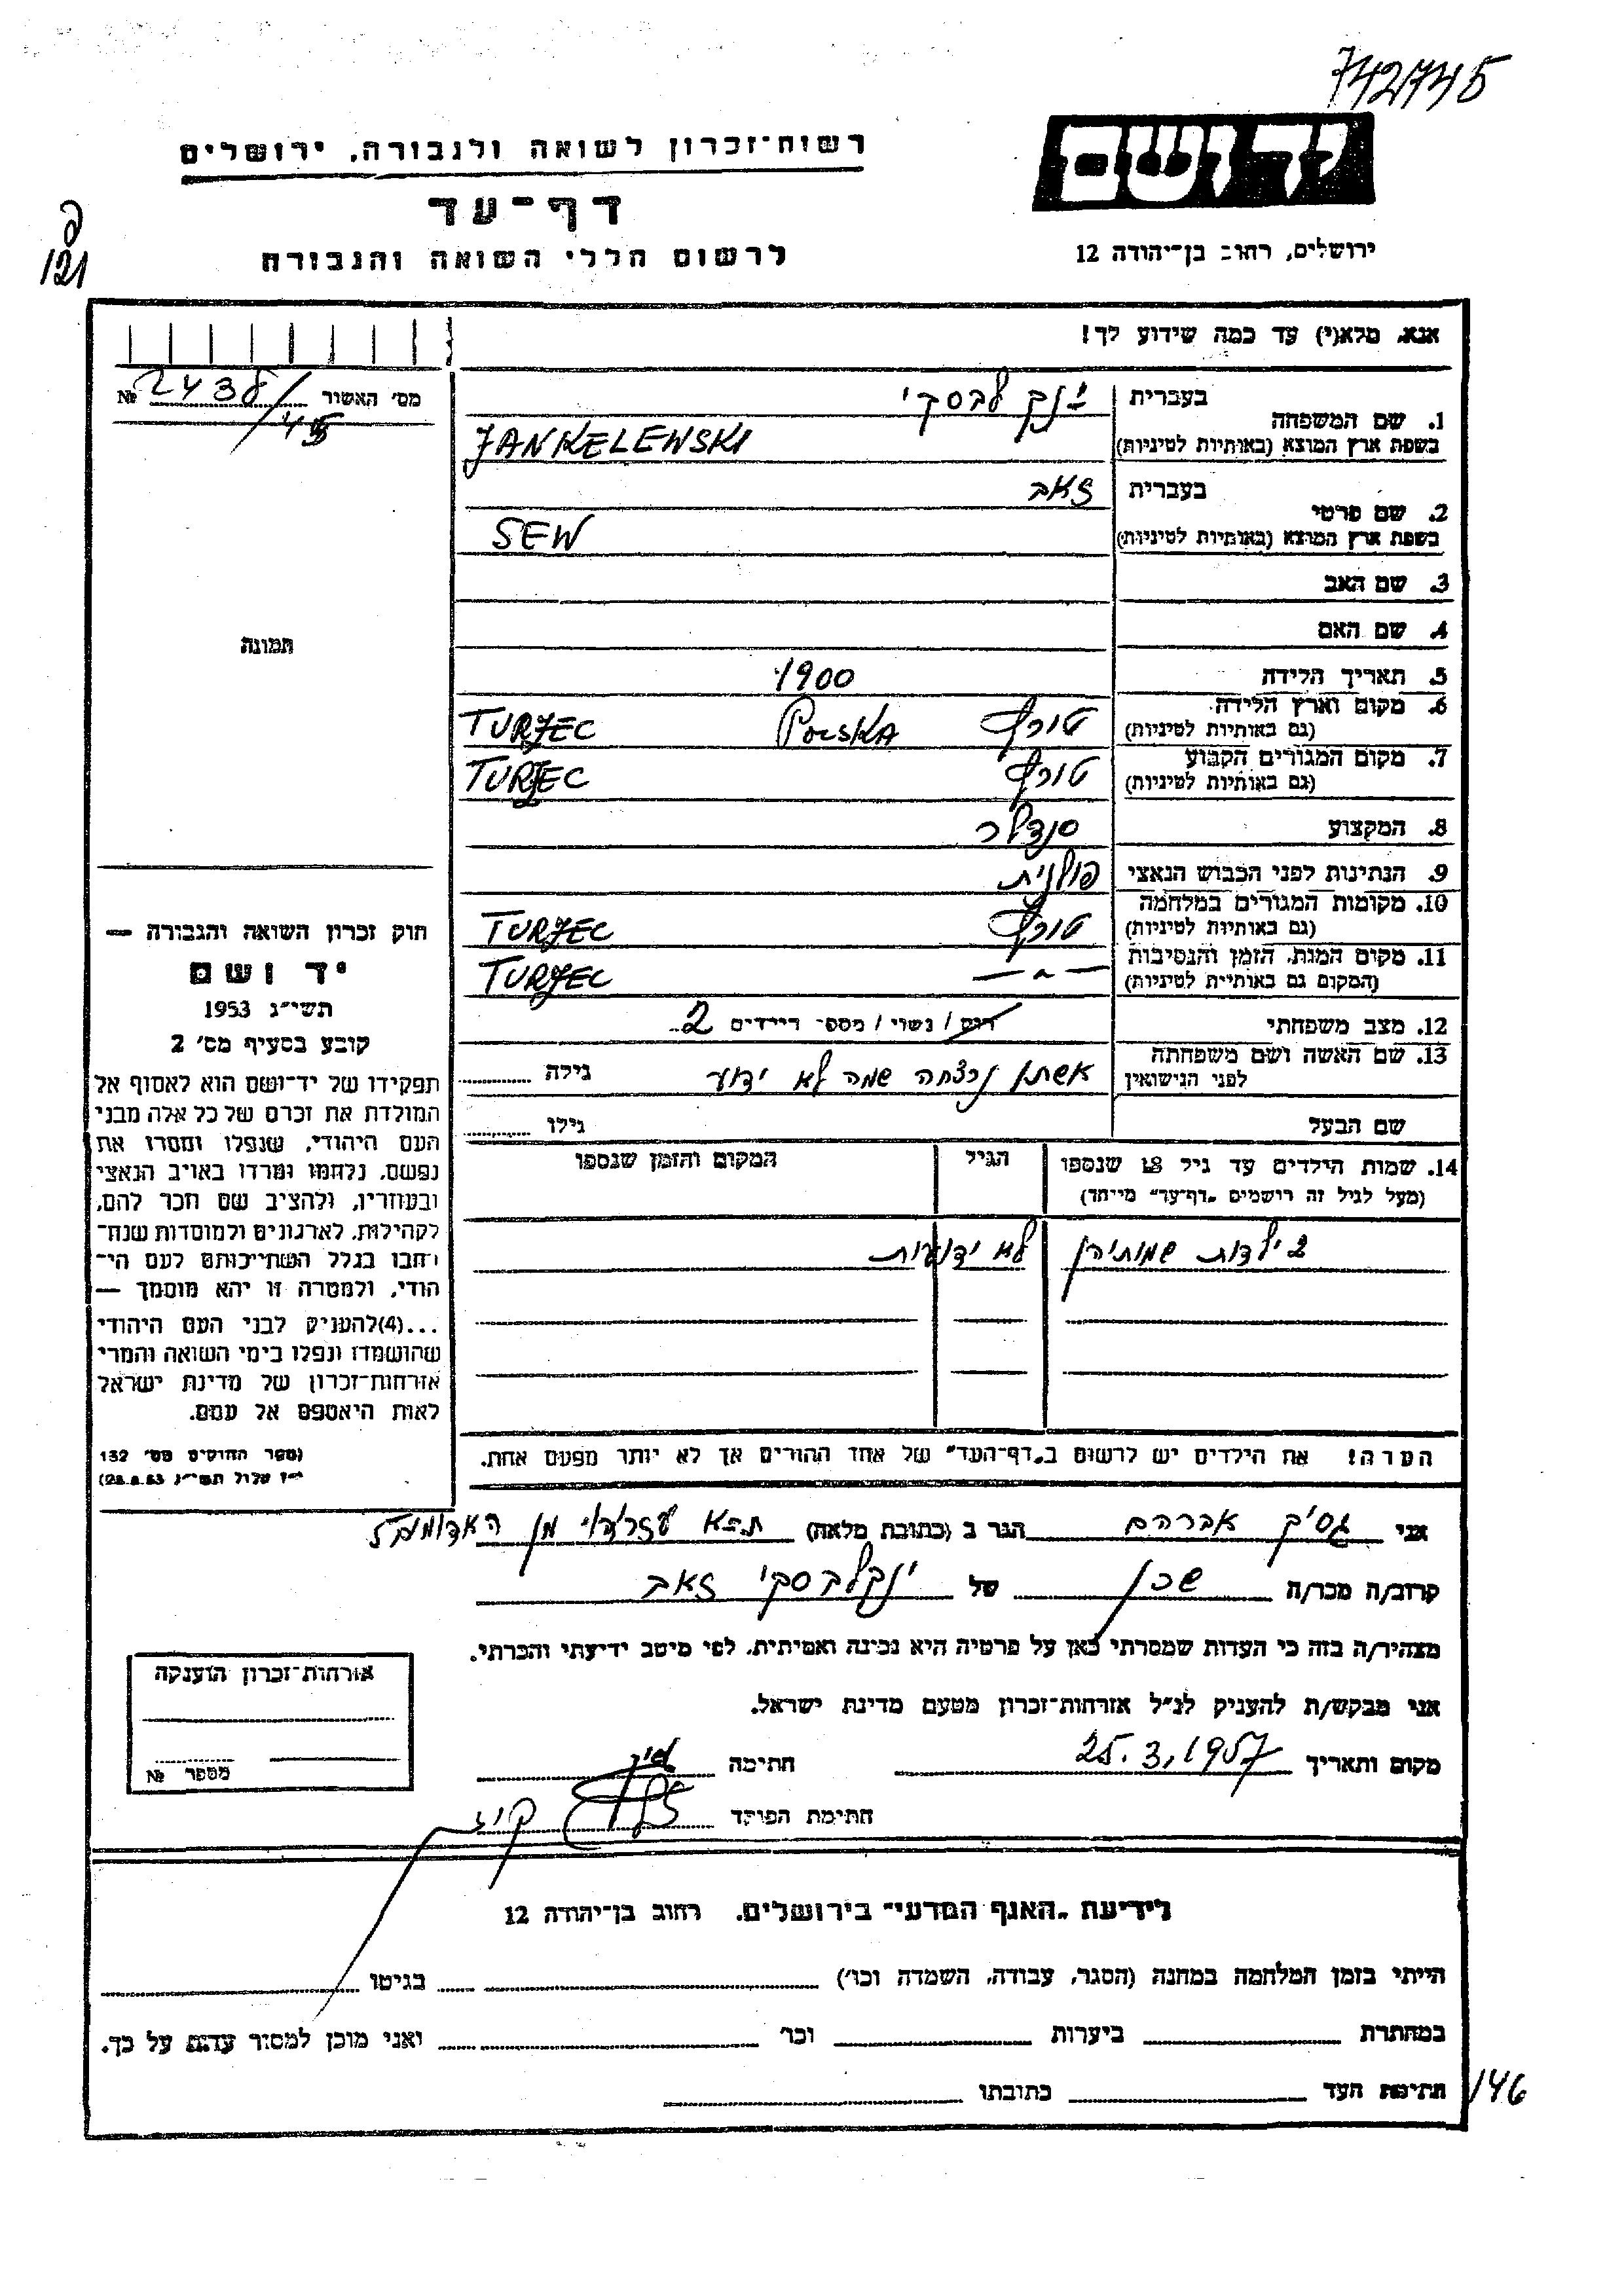 742745
יד ושם
רשות-זכרון לשואה ולגבורה, ירושלים
דף-עד
לרשום חללי השואה והגבורה
ירושלים, רחוב בן-יהודה 12
121
אנא, מלא(י) עד כמה שידוע לך!
מס׳ האשור 2438/45 №
1. שם המשפחה בעברית ינקלבסקי
בשפת ארץ המוצא (באותיות לטיניות) JANKELEWSKI
2. שם פרטי בעברית זאב
בשפת ארץ המוצא (באותיות לטיניות) SEW
3. שם האב
4. שם האם
תמונה
5. תאריך הלידה 1900
6. מקום וארץ הלידה טורץ Polska TURZEC
(גם באותיות לטיניות)
7. מקום המגורים הקבוע טורץ TURZEC
(גם באותיות לטיניות)
8. המקצוע סנדלר
9. הנתינות לפני הכבוש הנאצי פולנית
10. מקומות המגורים במלחמה טורץ TURZEC
(גם באותיות לטיניות)
11. מקום המות, הזמן והנסיבות — ״ — TURZEC
(המקום גם באותיות לטיניות)
12. מצב משפחתי רווק / נשוי / מספר הילדים 2
13. שם האשה ושם משפחתה אשתו נרצחה שמה לא ידוע גילה
לפני הנישואין
שם הבעל גילו
14. שמות הילדים עד גיל 18 שנספו הגיל המקום והזמן שנספו
(מעל לגיל זה רושמים "דף-עד" מיוחד)
2 ילדות שמותיהן לא ידועות
הערה! את הילדים יש לרשום ב"דף-העד" של אחד ההורים אך לא יותר מפעם אחת.
חוק זכרון השואה והגבורה —
יד ושם
תשי״ג 1953
קובע בסעיף מס׳ 2
תפקידו של יד-ושם הוא לאסוף אל
המולדת את זכרם של כל אלה מבני
העם היהודי, שנפלו ומסרו את
נפשם, נלחמו ומרדו באויב הנאצי
ובעוזריו, ולהציב שם וזכר להם,
לקהילות, לארגונים ולמוסדות שנח-
רבו בגלל השתייכותם לעם הי-
הודי, ולמטרה זו יהא מוסמך —
...(4) להעניק לבני העם היהודי
שהושמדו ונפלו בימי השואה והמרי
אזרחות-זכרון של מדינת ישראל
לאות היאספם אל עמם.
(ספר החוקים מס׳ 132
י״ז אלול תשי״ג 28.8.53)
אני גסיק אברהם הגר ב (כתובת מלאה) ת״א
קרוב/ה מכר/ה שכן של ינקלבסקי זאב
מצהיר/ה בזה כי העדות שמסרתי כאן על פרטיה היא נכונה ואמיתית, לפי מיטב ידיעתי והכרתי.
אני מבקש/ת להעניק לנ״ל אזרחות-זכרון מטעם מדינת ישראל.
מקום ותאריך 25.3.1957 חתימה
חתימת הפוקד
אזרחות-זכרון הוענקה
מספר №
לידיעת "האגף המדעי" בירושלים, רחוב בן-יהודה 12
הייתי בזמן המלחמה במחנה (הסגר, עבודה, השמדה וכו׳) בגיטו
במחתרת ביערות וכו׳ ואני מוכן למסור עדות על כך.
חתימת העד כתובתו
146